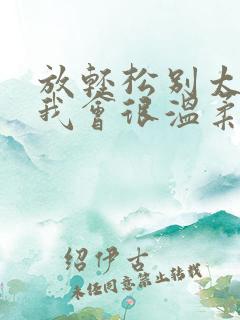 放轻松别太
我会很温柔
绍伊古
未经同意禁止转载